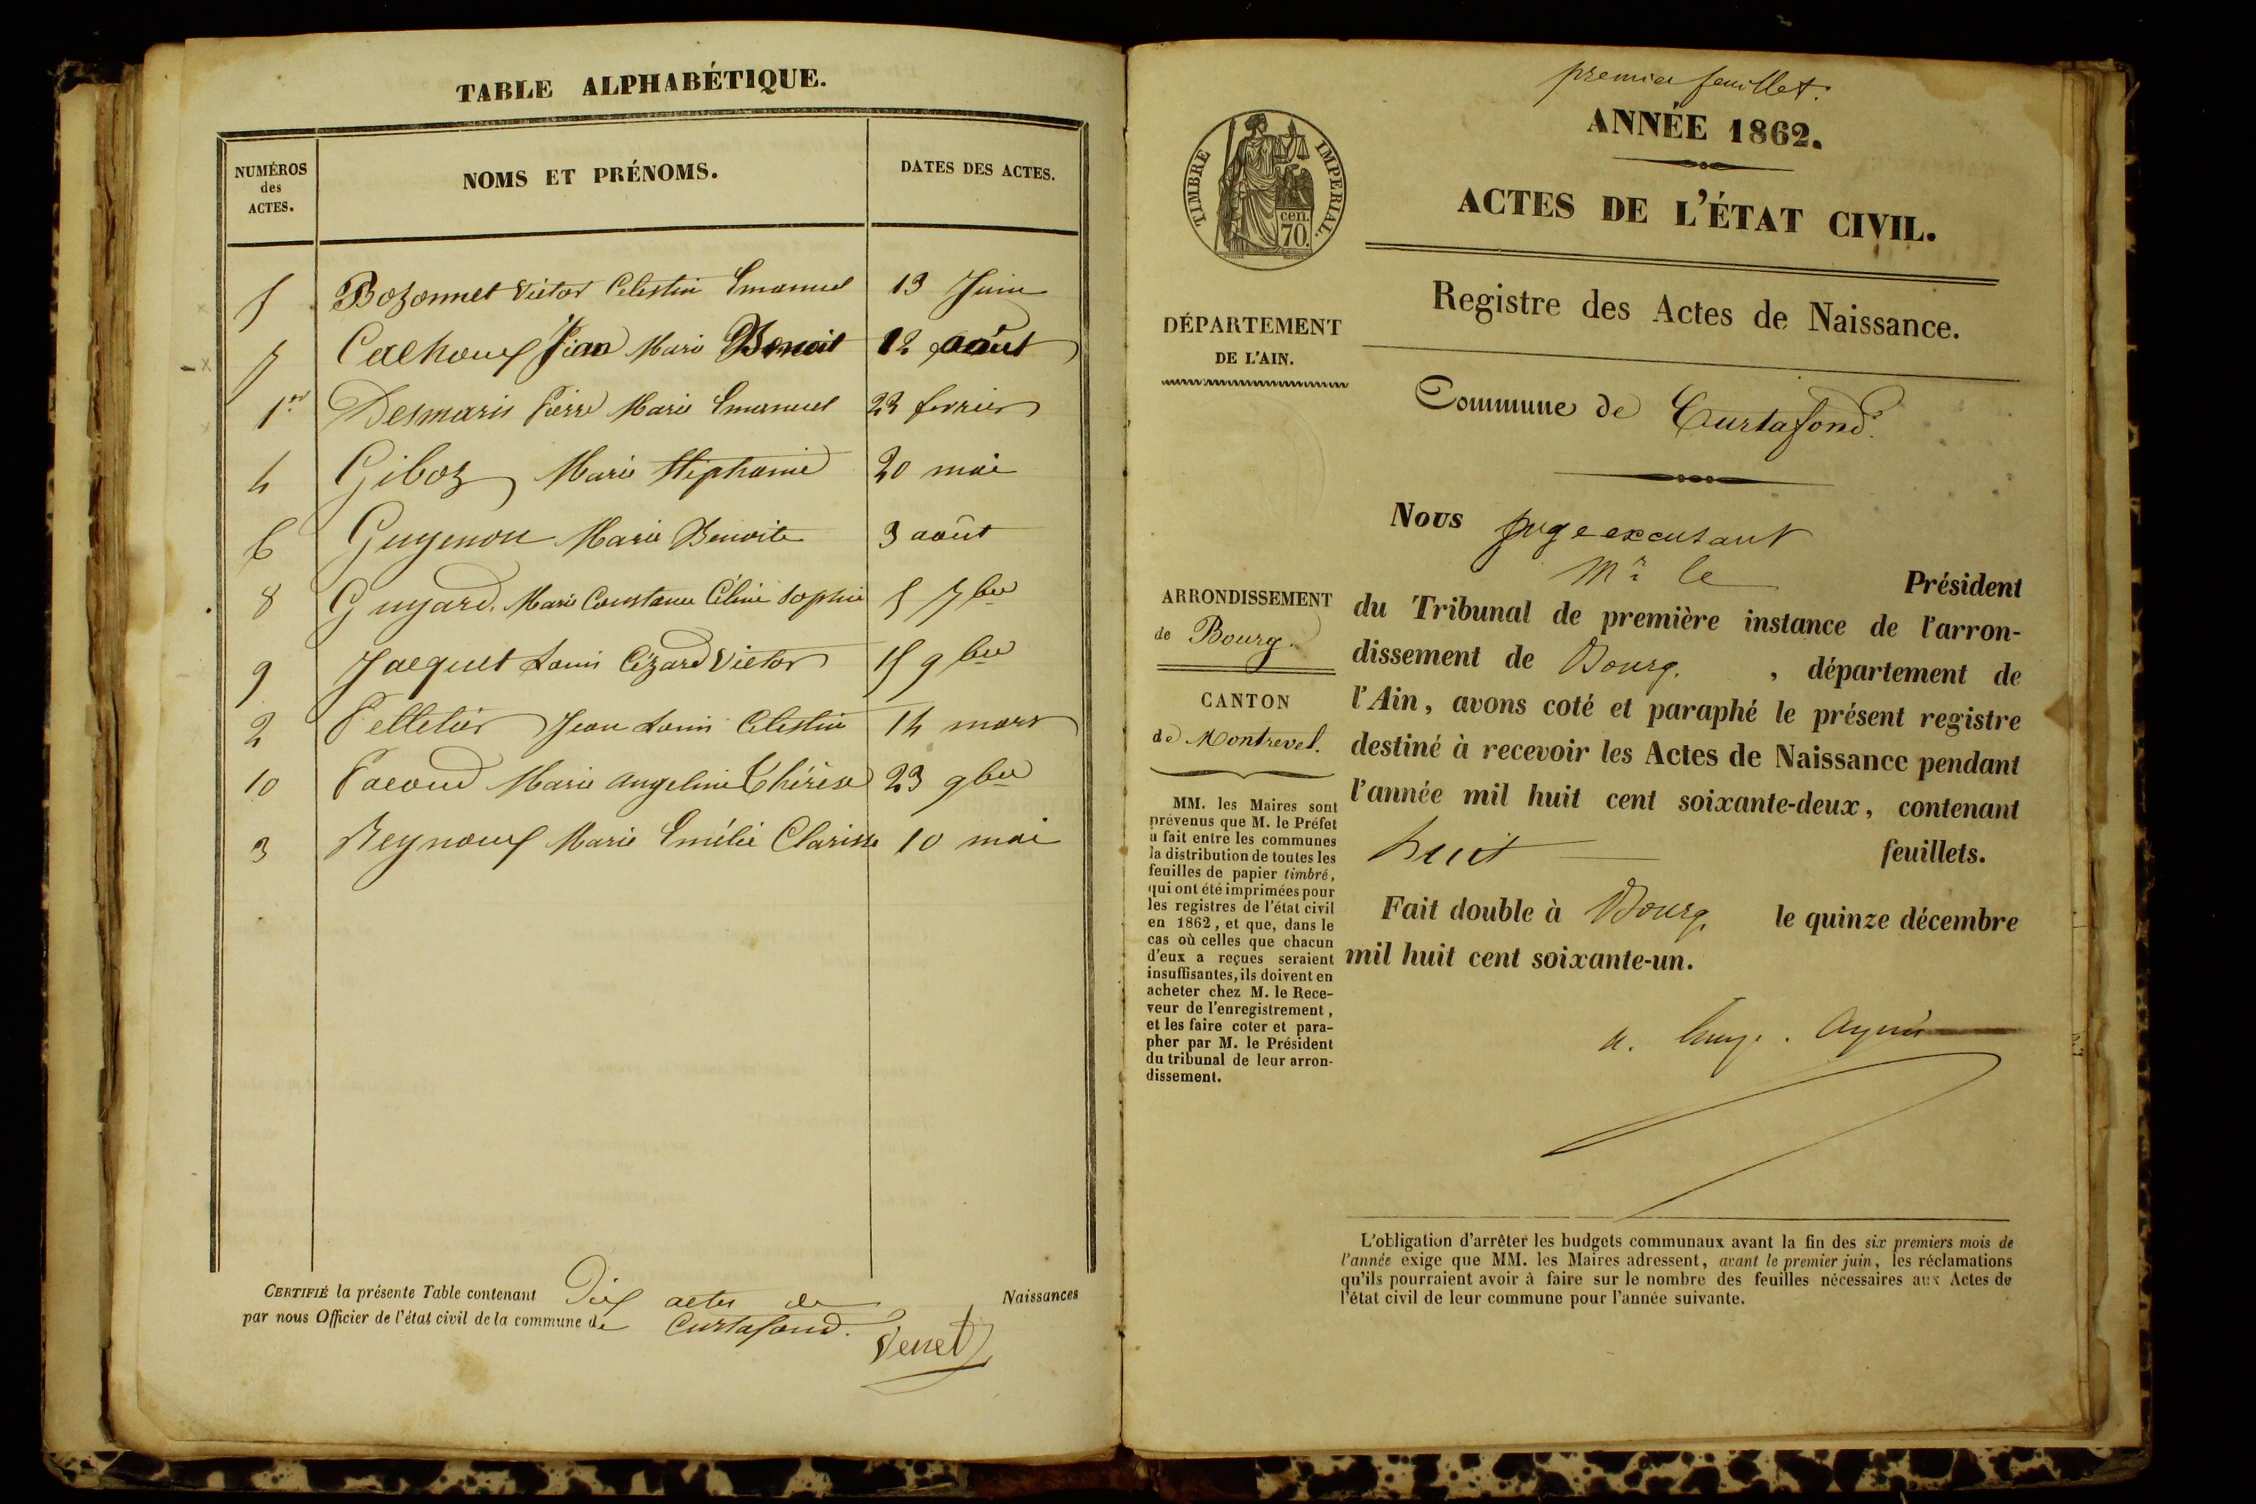 TABLE ALPHABÉTIQUE.
NUMÉROS
des
ACTES.
NOMS ET PRÉNOMS.
DATES DES ACTES.
5 Bozonnet Victor Celestin Emanuel 13 Juin
7 Calhouf Jean Marie Benoit 12 août
1er Desmaris Pierre Marie Emanuel 23 fevrier
4 Giboz Marie Stephanie 20 mai
6 Guyenon Marie Benoite 3 août
8 Guyard Marie Constance Céline Sophie 5 7bre
9 Jacquet Louis Cézard Victor 15 9bre
2 Pelletier Jean Louis Celestin 14 mars
10 Pacoud Marie Angeline Thérèse 23 9bre
3 Reynouf Marie Emélie Clarisse 10 mai
CERTIFIÉ la présente Table contenant Dix actes de Naissances
par nous Officier de l'état civil de la commune de Curtafond.
Venet
premier feuillet.
ANNÉE 1862.
TIMBRE IMPERIAL.
cen.
70.
ACTES DE L'ÉTAT CIVIL.
DÉPARTEMENT
DE L'AIN.
Registre des Actes de Naissance.
Commune de Curtafond.
ARRONDISSEMENT
de Bourg.
CANTON
de Montrevel.
MM. les Maires sont
prévenus que M. le Préfet
a fait entre les communes
la distribution de toutes les
feuilles de papier timbré,
qui ont été imprimées pour
les registres de l'état civil
en 1862, et que, dans le
cas où celles que chacun
d'eux a reçues seraient
insuffisantes, ils doivent en
acheter chez M. le Rece-
veur de l'enregistrement,
et les faire coter et para-
pher par M. le Président
du tribunal de leur arron-
dissement.
Nous juge excusant
Mr le Président
du Tribunal de première instance de l'arron-
dissement de Bourg. , département de
l'Ain, avons coté et paraphé le présent registre
destiné à recevoir les Actes de Naissance pendant
l'année mil huit cent soixante-deux, contenant
huit feuillets.
Fait double à Bourg, le quinze décembre
mil huit cent soixante-un.
L'obligation d'arrêter les budgets communaux avant la fin des six premiers mois de
l'année exige que MM. les Maires adressent, avant le premier juin, les réclamations
qu'ils pourraient avoir à faire sur le nombre des feuilles nécessaires aux Actes de
l'état civil de leur commune pour l'année suivante.